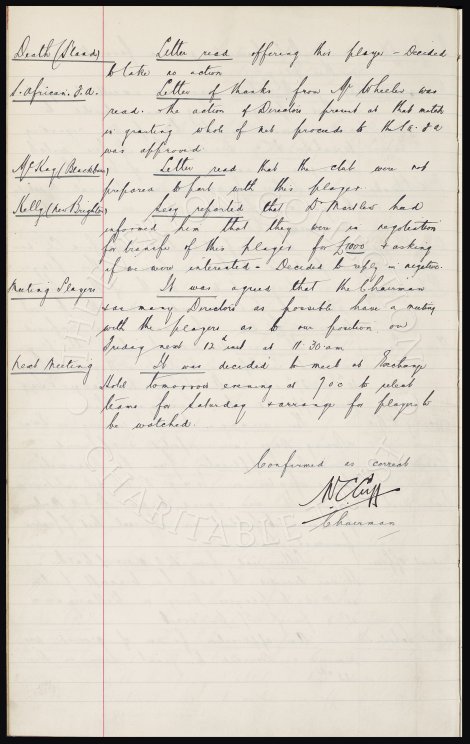 Death (S'land) Letter read offering this player - Decided
to take no action
S. African. F.A. Letter of thanks from Mr Wheeler was
read. The action of Directors present at that match
in granting whole of net proceeds to the S.A. F.A
was approved.
McKay (Blackburn) Letter read that the club were not
prepared to part with this player.
Kelly (New Brighton) Secy reported that Dr Marslew had
informed him that they were in negotiation
for transfer of this player for £1000 & asking
if we were interested - Decided to reply in negative.
Meeting Players It was agreed that the Chairman
& as many Directors as possible have a meeting
with the players as to our position on
Friday next 12th inst at 11.30 am
Next Meeting It was decided to meet at Exchange
Hotel tomorrow evening at 7 o c to select
teams for Saturday & arrange for players to
be watched.
Confirmed as correct
W.C. Cuff
Chairman
CHARITABLE